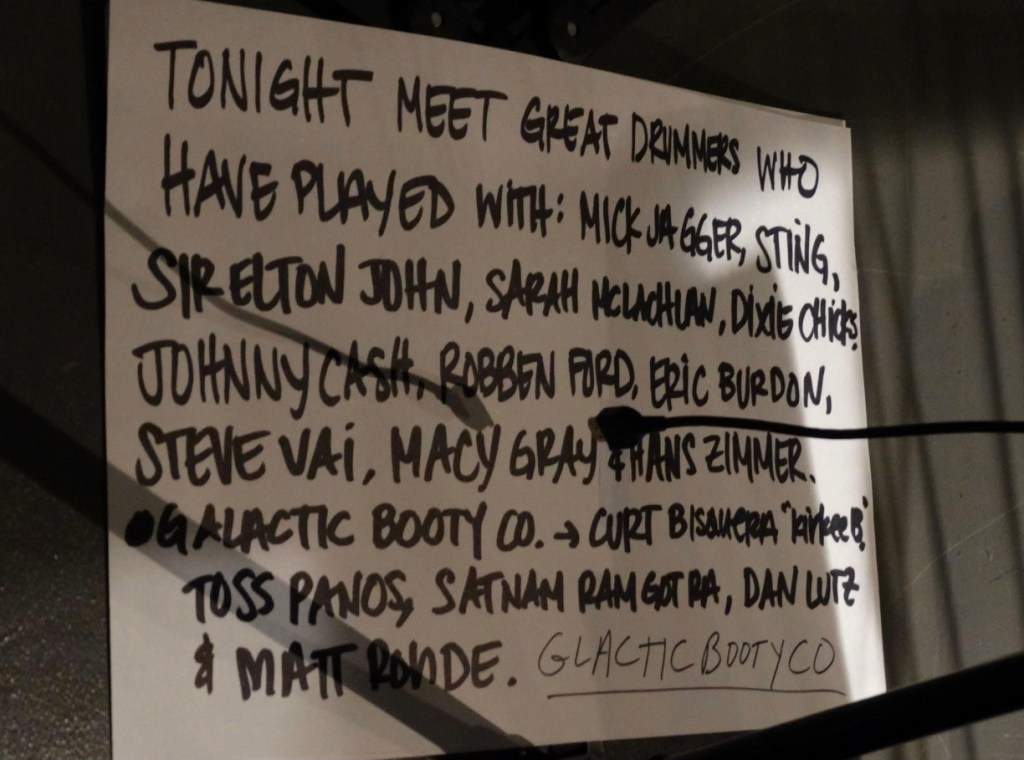 TONIGHT MEET GREAT DRUMMERS WHO
HAVE PLAYED WITH: MICK JAGGER, STING,
SIR ELTON JOHN, SARAH MCLACHLAN, DIXIE CHICKS,
JOHNNY CASH, ROBBEN FORD, ERIC BURDON,
STEVE VAI, MACY GRAY & HANS ZIMMER.
• GALACTIC BOOTY CO. → CURT BISQUERA "kirkee B."
TOSS PANOS, SATNAM RAMGOTRA, DAN LUTZ
& MATT ROHDE. GLACTIC BOOTY CO